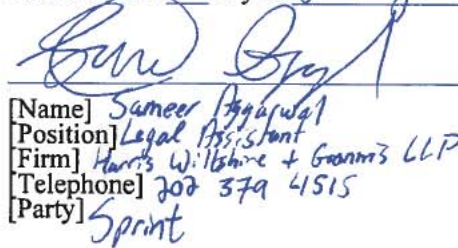 [Name] Sameer Aggarwal
[Position] Legal Assistant
[Firm] Harris Wiltshire + Grannis LLP
[Telephone] 202 379 4515
[Party] Sprint